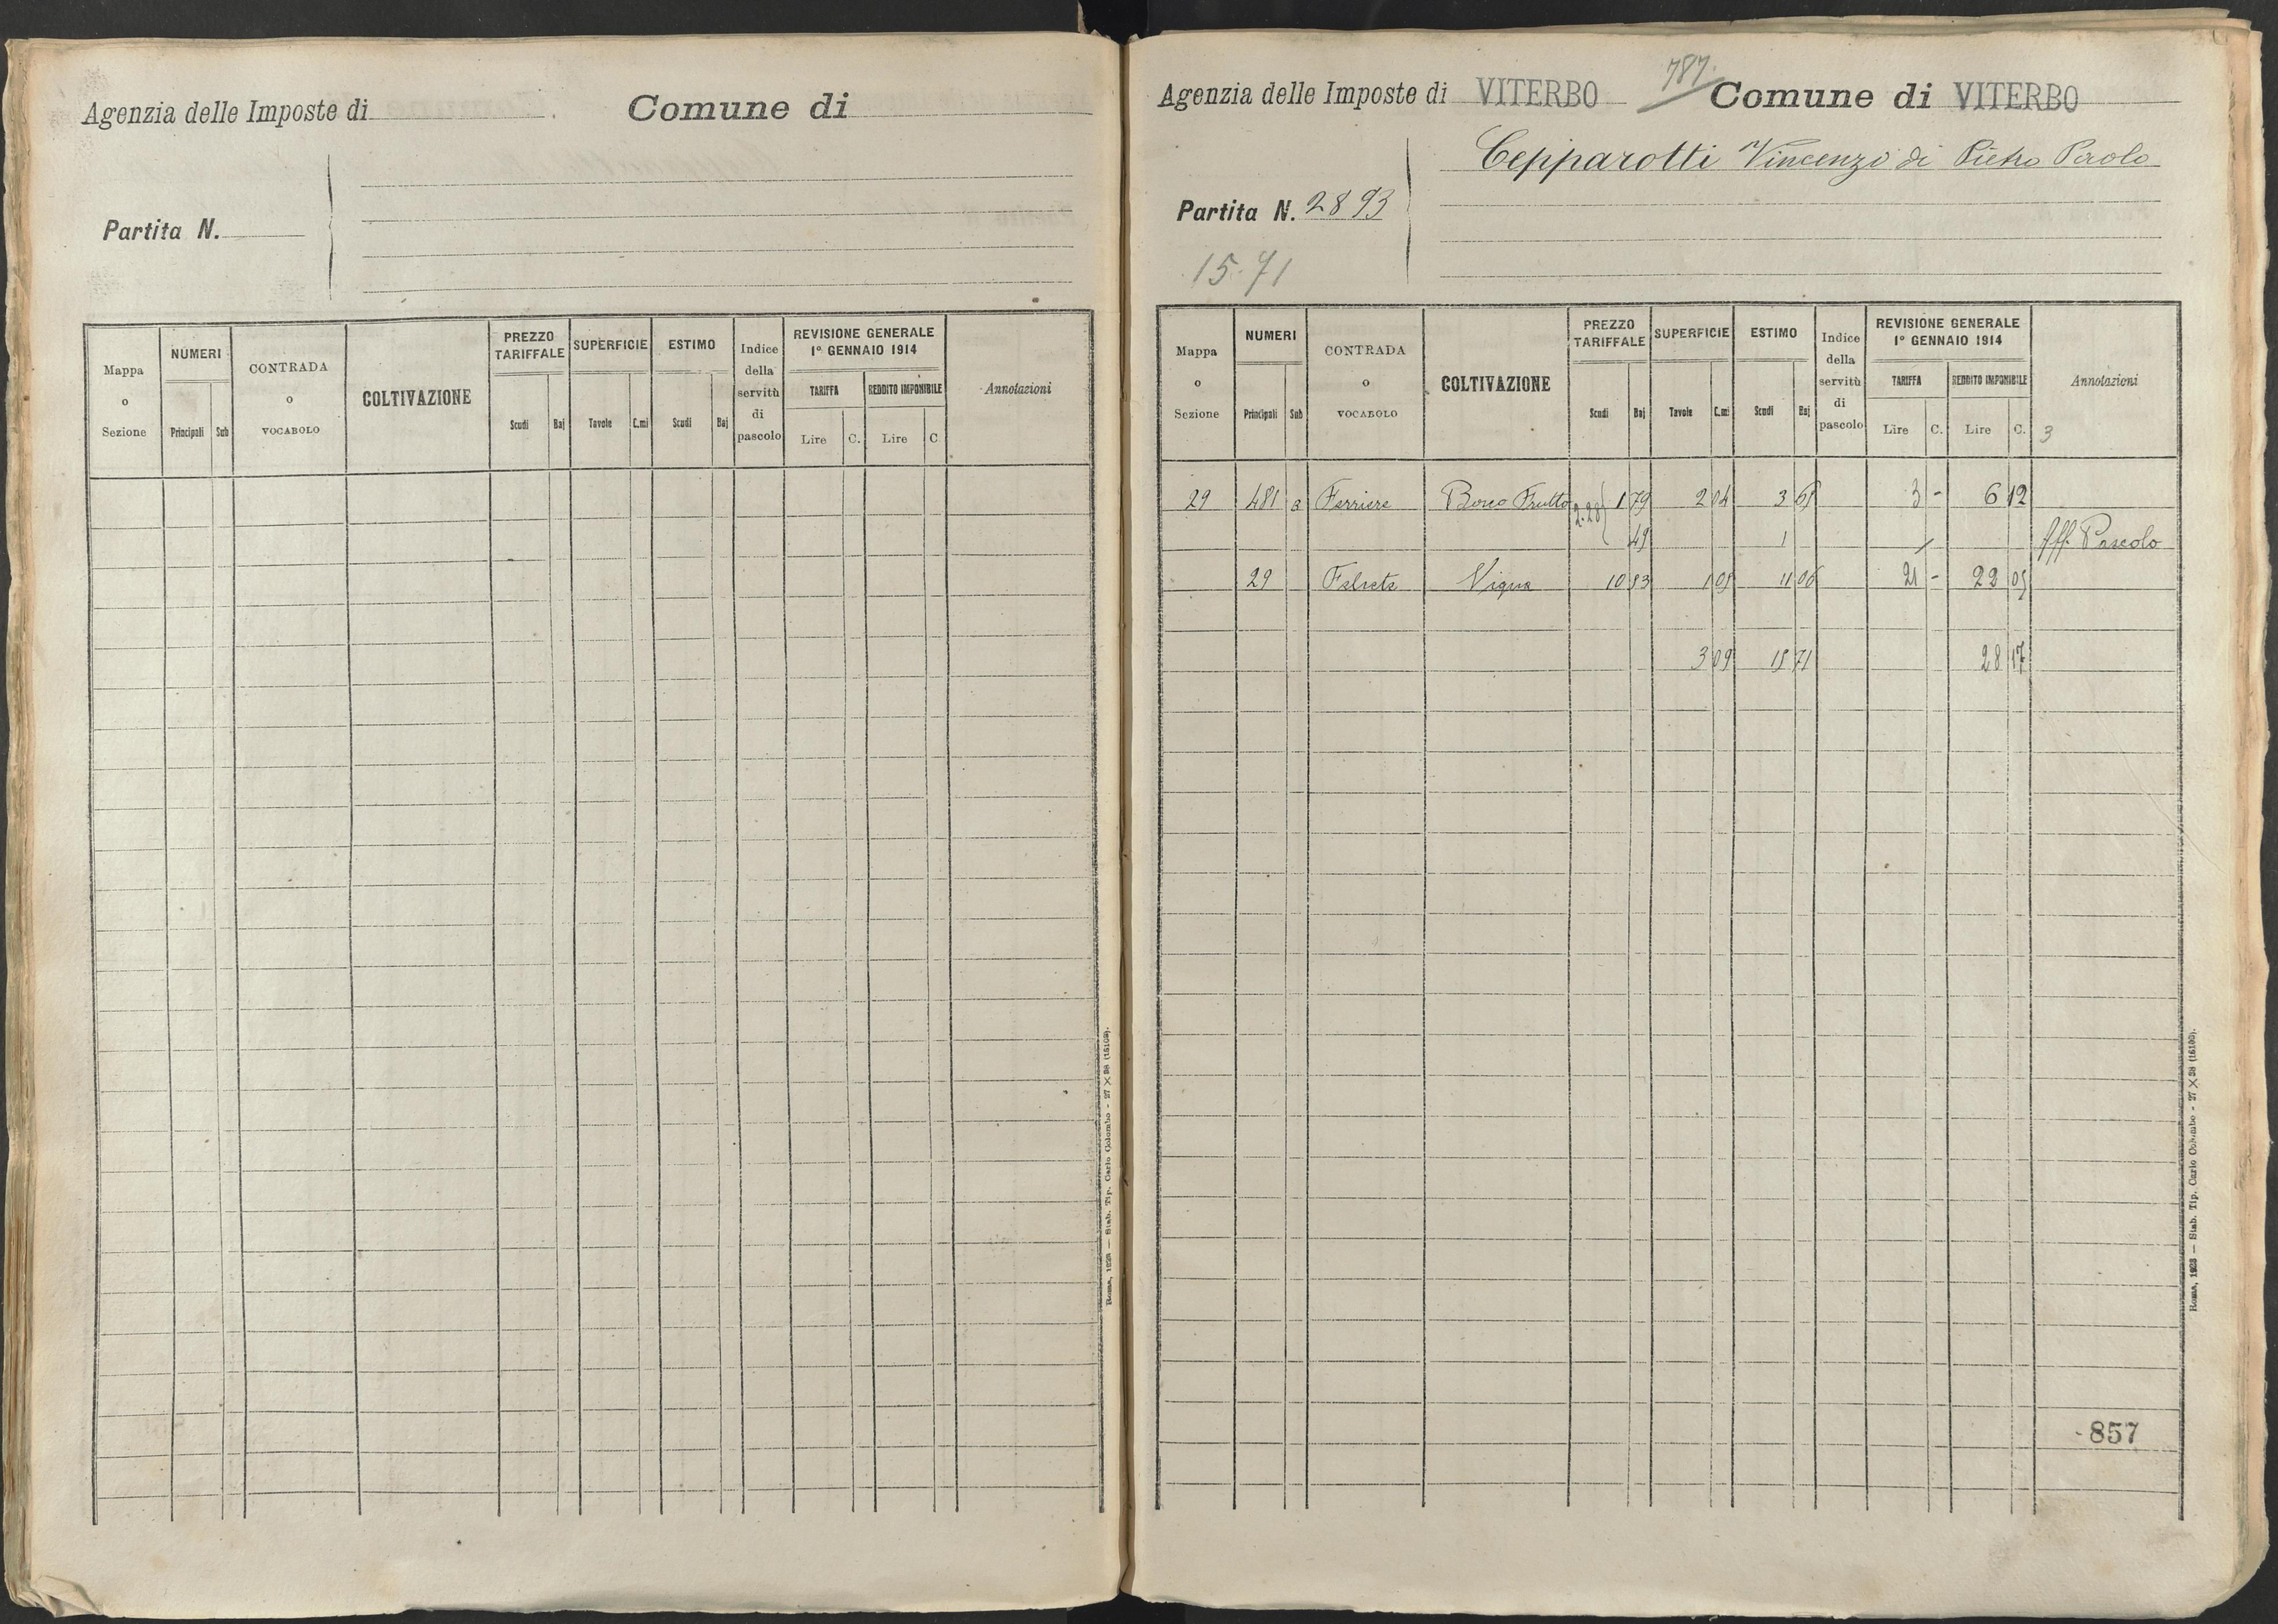 Agenzia delle Imposte di Comune di
Partita N.
Mappa o Sezione NUMERI Principali Sub CONTRADA o VOCABOLO COLTIVAZIONE PREZZO TARIFFALE Scudi Baj SUPERFICIE Tavole C.mi ESTIMO Scudi Baj Indice della servitù di pascolo REVISIONE GENERALE 1° GENNAIO 1914 TARIFFA Lire C. REDDITO IMPONIBILE Lire C Annotazioni
Roma, 1923 — Stab. Tip. Carlo Colombo - 27 × 38 (15103).
787.
Agenzia delle Imposte di VITERBO Comune di VITERBO
Cepparotti Vincenzo di Pietro Paolo
Partita N. 2893
15-71
Mappa o Sezione NUMERI Principali Sub CONTRADA o VOCABOLO COLTIVAZIONE PREZZO TARIFFALE Scudi Baj SUPERFICIE Tavole C.mi ESTIMO Scudi Baj Indice della servitù di pascolo REVISIONE GENERALE 1° GENNAIO 1914 TARIFFA Lire C. REDDITO IMPONIBILE Lire C. Annotazioni
3
29 481 a Ferriere Bosco Frutto 2.28 1 79 2 04 3 65 3 - 6 12
49 1 Aff. Pascolo
29 Felceta Vigna 10 53 1 05 11 06 21 - 22 05
3 09 15 71 28 17
857
Roma, 1923 — Stab. Tip. Carlo Colombo - 27 × 38 (15103).